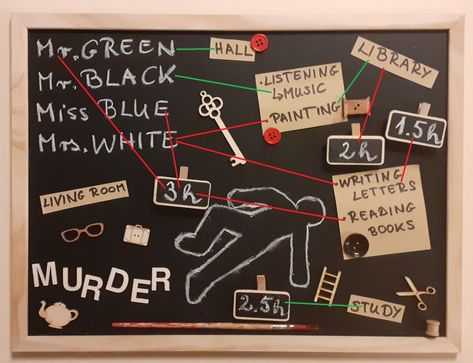 Mr. GREEN
HALL
Mr. BLACK
Miss BLUE
Mrs. WHITE
LIBRARY
• LISTENING
MUSIC
• PAINTING
1.5h
2h
3h
• WRITING
LETTERS
• READING
BOOKS
LIVING ROOM
MURDER
2.5h
STUDY